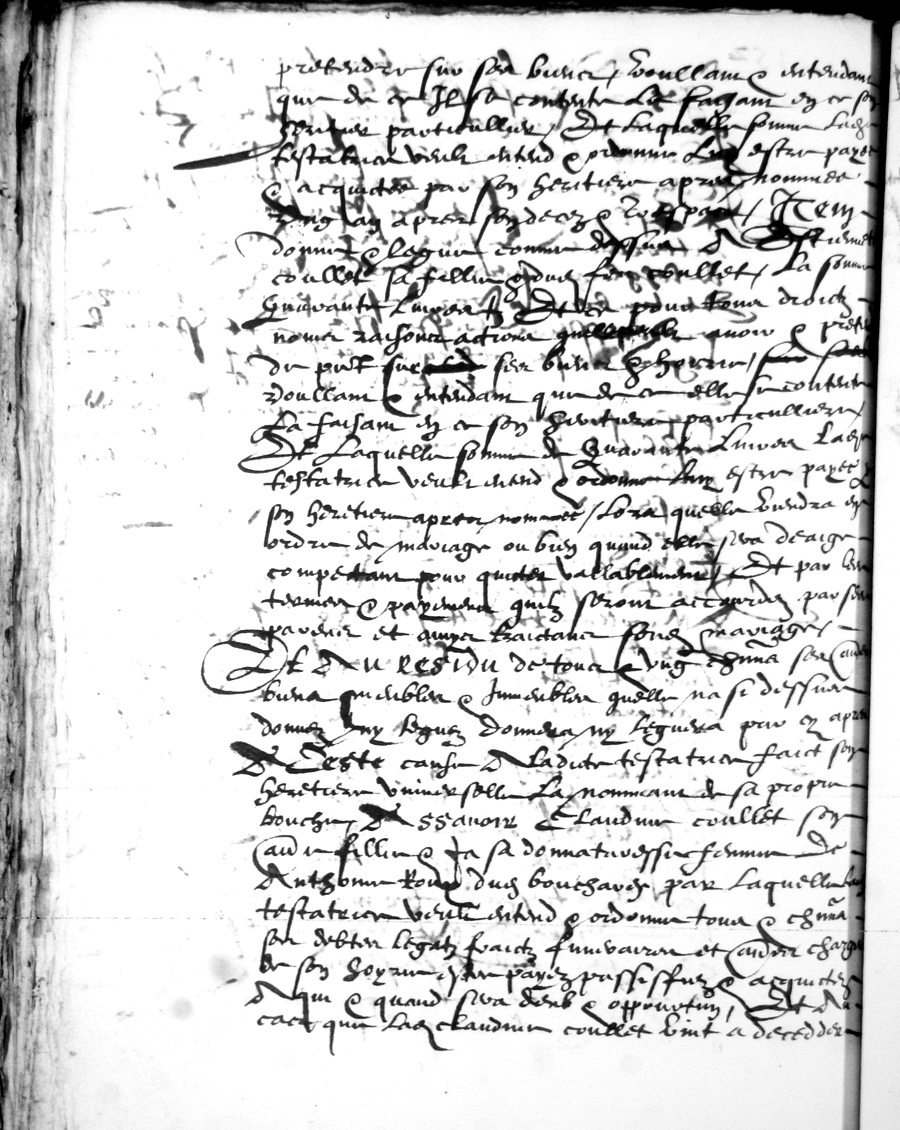 pretendre sur ses biens / voullant & entendant
que de ce Il se contente Le faisant en ce son
heritier particullier / Et Laquelle somme Lad
testatrice veult entend & ordonne Luy estre payee
& acquictee par son heritiere apres nommee
Ung an apres son decez & trespas / Item
donne & legue comme dessus A Estiennette
coullet sa fillie & dud feu coullet / La somme
Quarante Livres tz Et ce pour tous droictz
noms raisons actions quelle avoir & preten
dre peult sur ses biens & hoyrie /
voullant & entendant que de ce elle se contente
La faisant en ce son heritiere particulliere /
Et Laquelle somme de Quarante Livres Lad
testatrice veult entend & ordonne Luy estre payee
son heretiere apres nommee / Lors quelle viendra en
ordre de mariage ou bien quand elle sera deaige
competant pour quicter vallablement / Et par les
termes & payemens quilz seront accordez par ses
parens et amys traictans sond mariage /
Et Au residu de tous & ungs chuns ses aultres
biens meubles & Immeubles quelle na si dessus
donnez ny leguez donnera ny leguera par cy apres
A Ceste cause A Ladite testatrice faict son
heretiere universelle La nommant de sa propre
bouche / A Assavoir Claudine coullet son
aultre fillie & Ja sa donnatresse femme De
Anthoine Roux dud boucharey par Laquelle
testatrice veult entend & ordonne tous & chuns
ses debtes legatz fraictz funeraires et aultres charges
de son hoyrie estre payez passisfiez & acquictez
A qui & quand sera deub & opportun / Et Au
cas que Lad claudine coullet vint a decedder